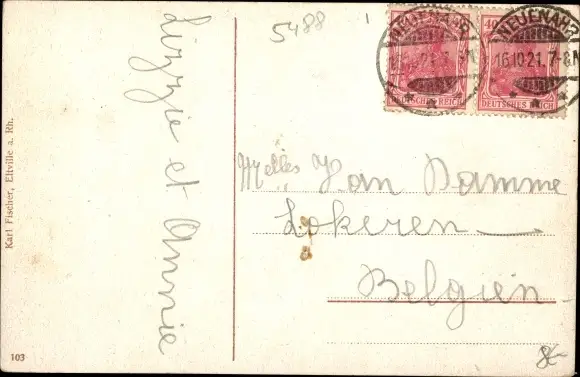 5488
NEUENAHR
16.10.21. 7-8N
40
DEUTSCHES REICH
DEUTSCHES REICH
Lizzie et Annie
Melles Van Damme
Lokeren
Belgien
Karl Fischer, Eltville a. Rh.
103
8-